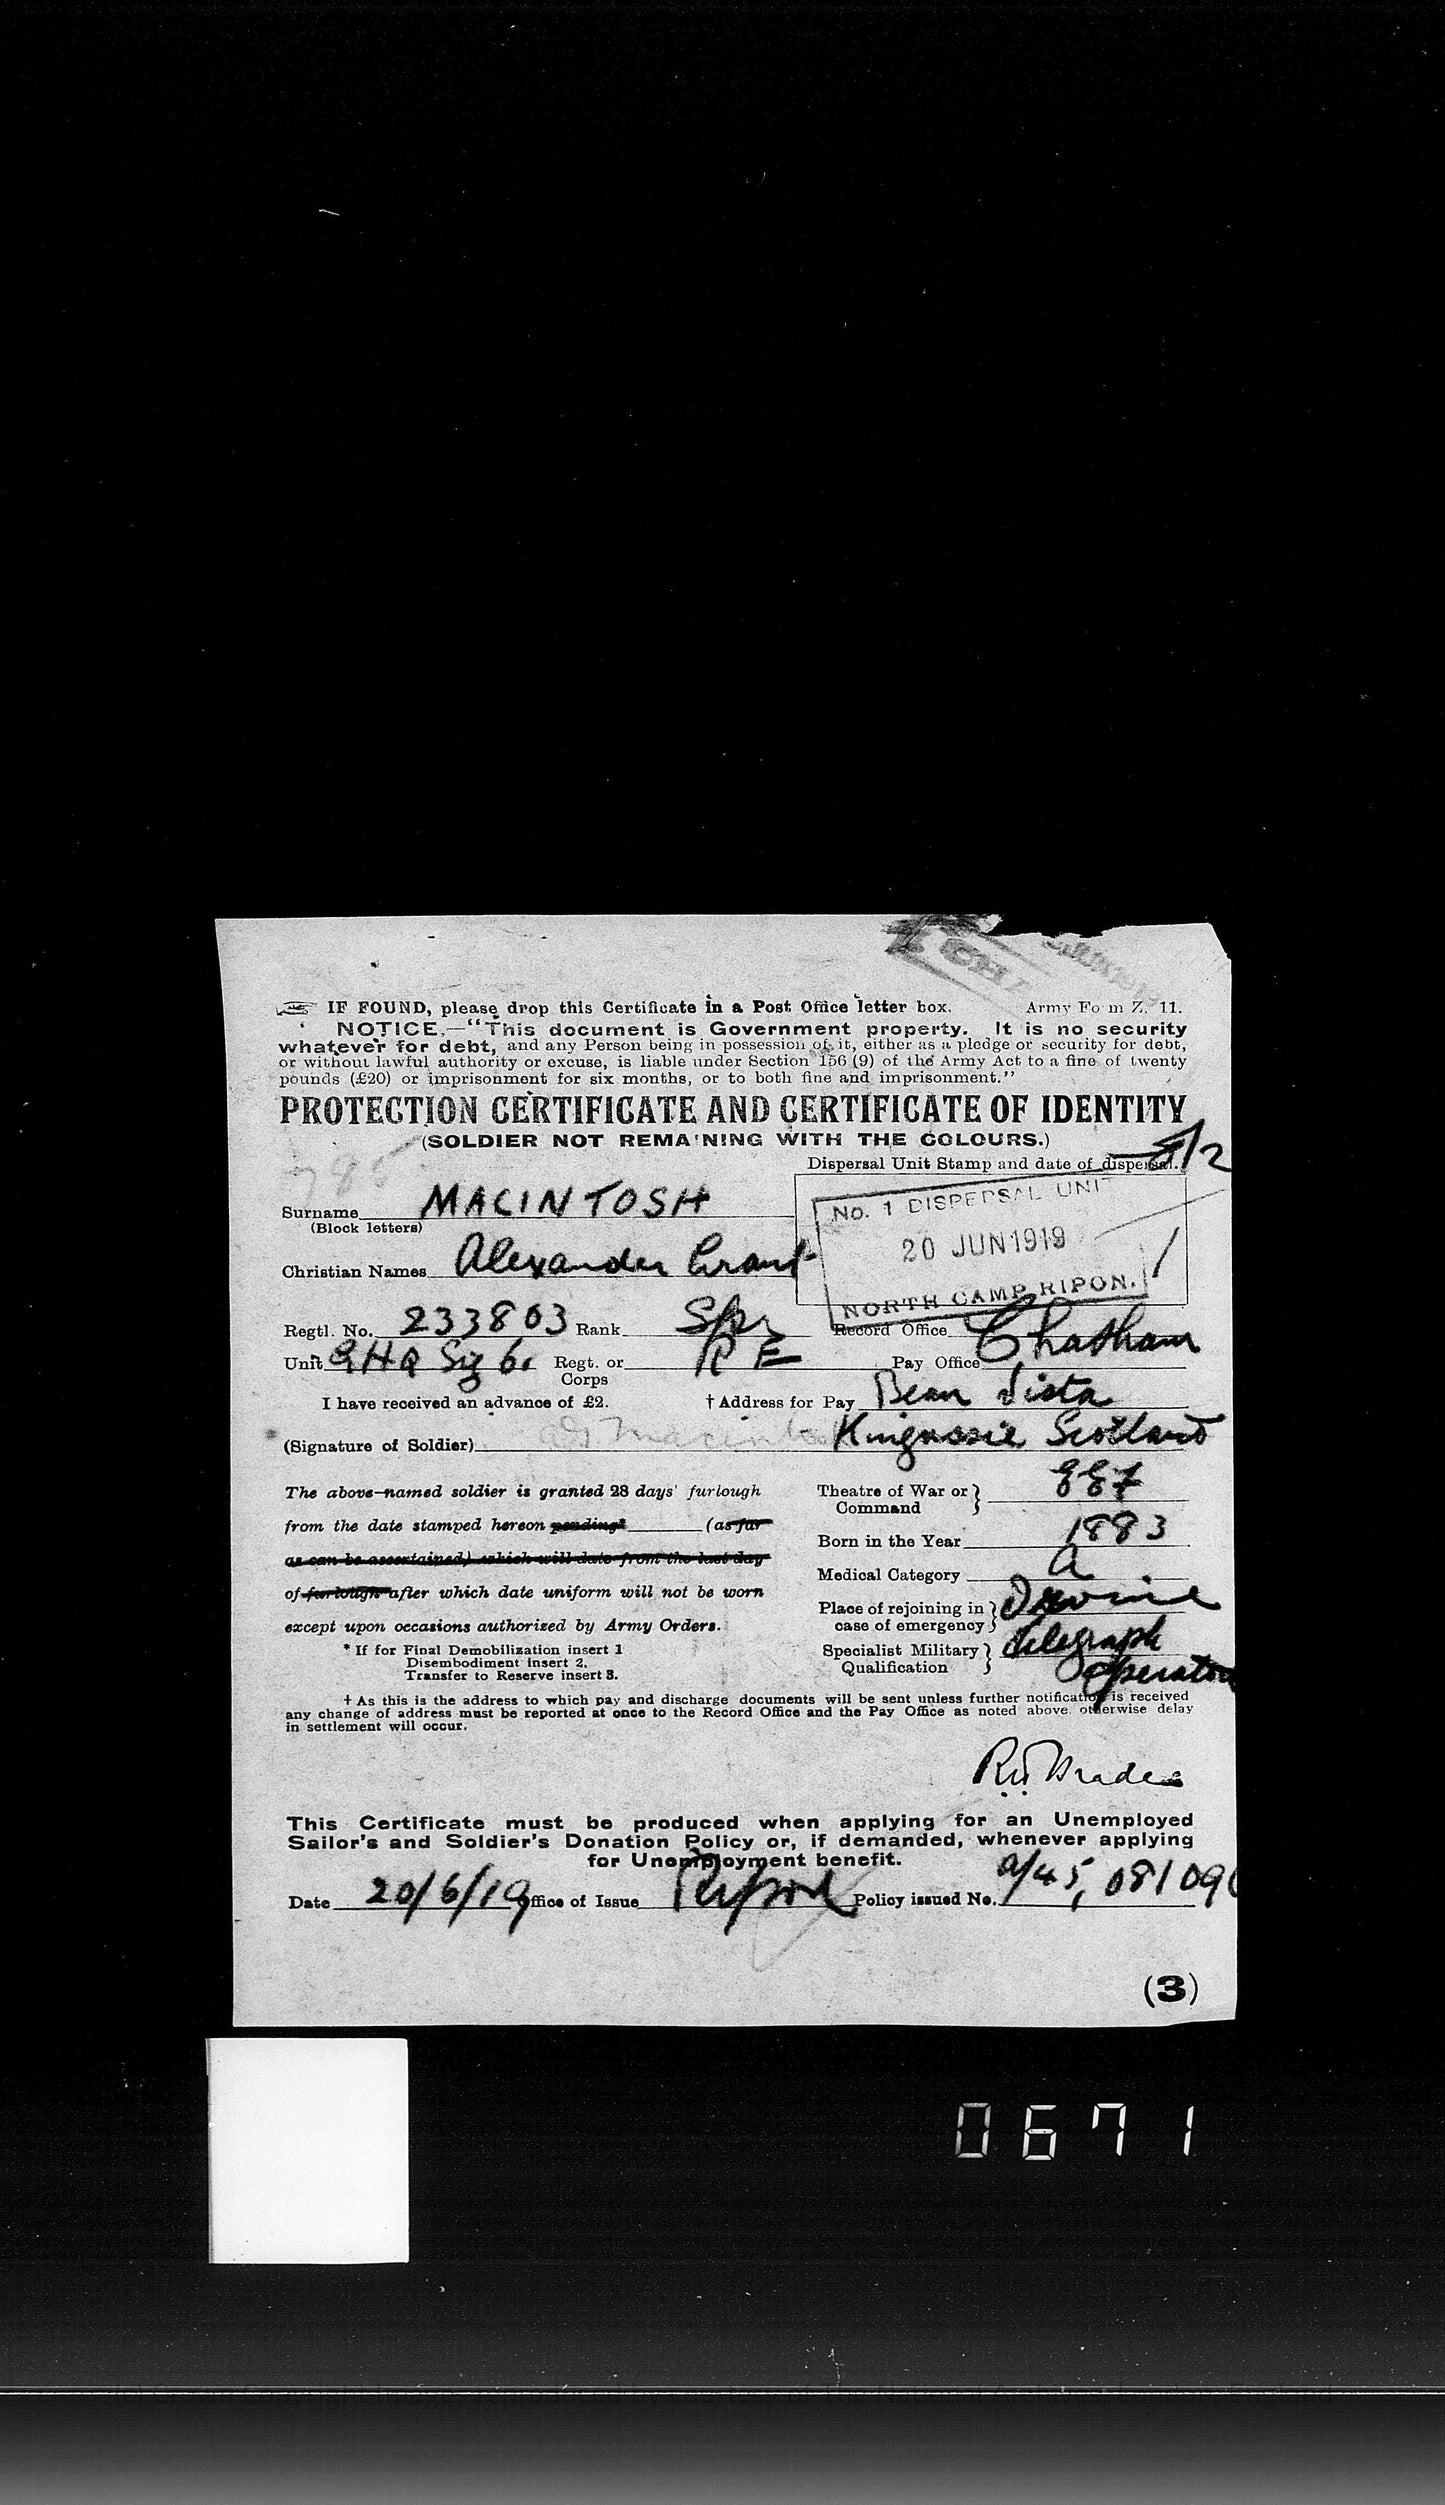 IF FOUND, please drop this Certificate in a Post Office letter box. Army Fo m Z. 11.
NOTICE.—"This document is Government property. It is no security
whatever for debt, and any Person being in possession of it, either as a pledge or security for debt,
or without lawful authority or excuse, is liable under Section 156 (9) of the Army Act to a fine of twenty
pounds (£20) or imprisonment for six months, or to both fine and imprisonment."
PROTECTION CERTIFICATE AND CERTIFICATE OF IDENTITY
(SOLDIER NOT REMAINING WITH THE COLOURS.)
Dispersal Unit Stamp and date of dispersal.
Surname MACINTOSH
(Block letters)
No. 1 DISPERSAL UNIT
20 JUN 1919
NORTH CAMP RIPON.
Christian Names Alexander Grant
Regtl. No. 233803 Rank Spr Record Office Chatham
Unit GHQ Sig Co Regt. or Corps R E Pay Office
I have received an advance of £2. † Address for Pay Bean Vista
(Signature of Soldier) AG Macintosh Kingussie Scotland
The above-named soldier is granted 28 days' furlough
from the date stamped hereon pending* (as far
as can be ascertained) which will date from the last day
of furlough after which date uniform will not be worn
except upon occasions authorized by Army Orders.
* If for Final Demobilization insert 1
Disembodiment insert 2.
Transfer to Reserve insert 3.
Theatre of War or Command EEF
Born in the Year 1883
Medical Category A
Place of rejoining in case of emergency Irvine
Specialist Military Qualification Telegraph Operator
† As this is the address to which pay and discharge documents will be sent unless further notification is received
any change of address must be reported at once to the Record Office and the Pay Office as noted above otherwise delay
in settlement will occur.
This Certificate must be produced when applying for an Unemployed
Sailor's and Soldier's Donation Policy or, if demanded, whenever applying
for Unemployment benefit.
Date 20/6/19 Office of Issue Ripon Policy issued No. A/45, 08109
(3)
0671